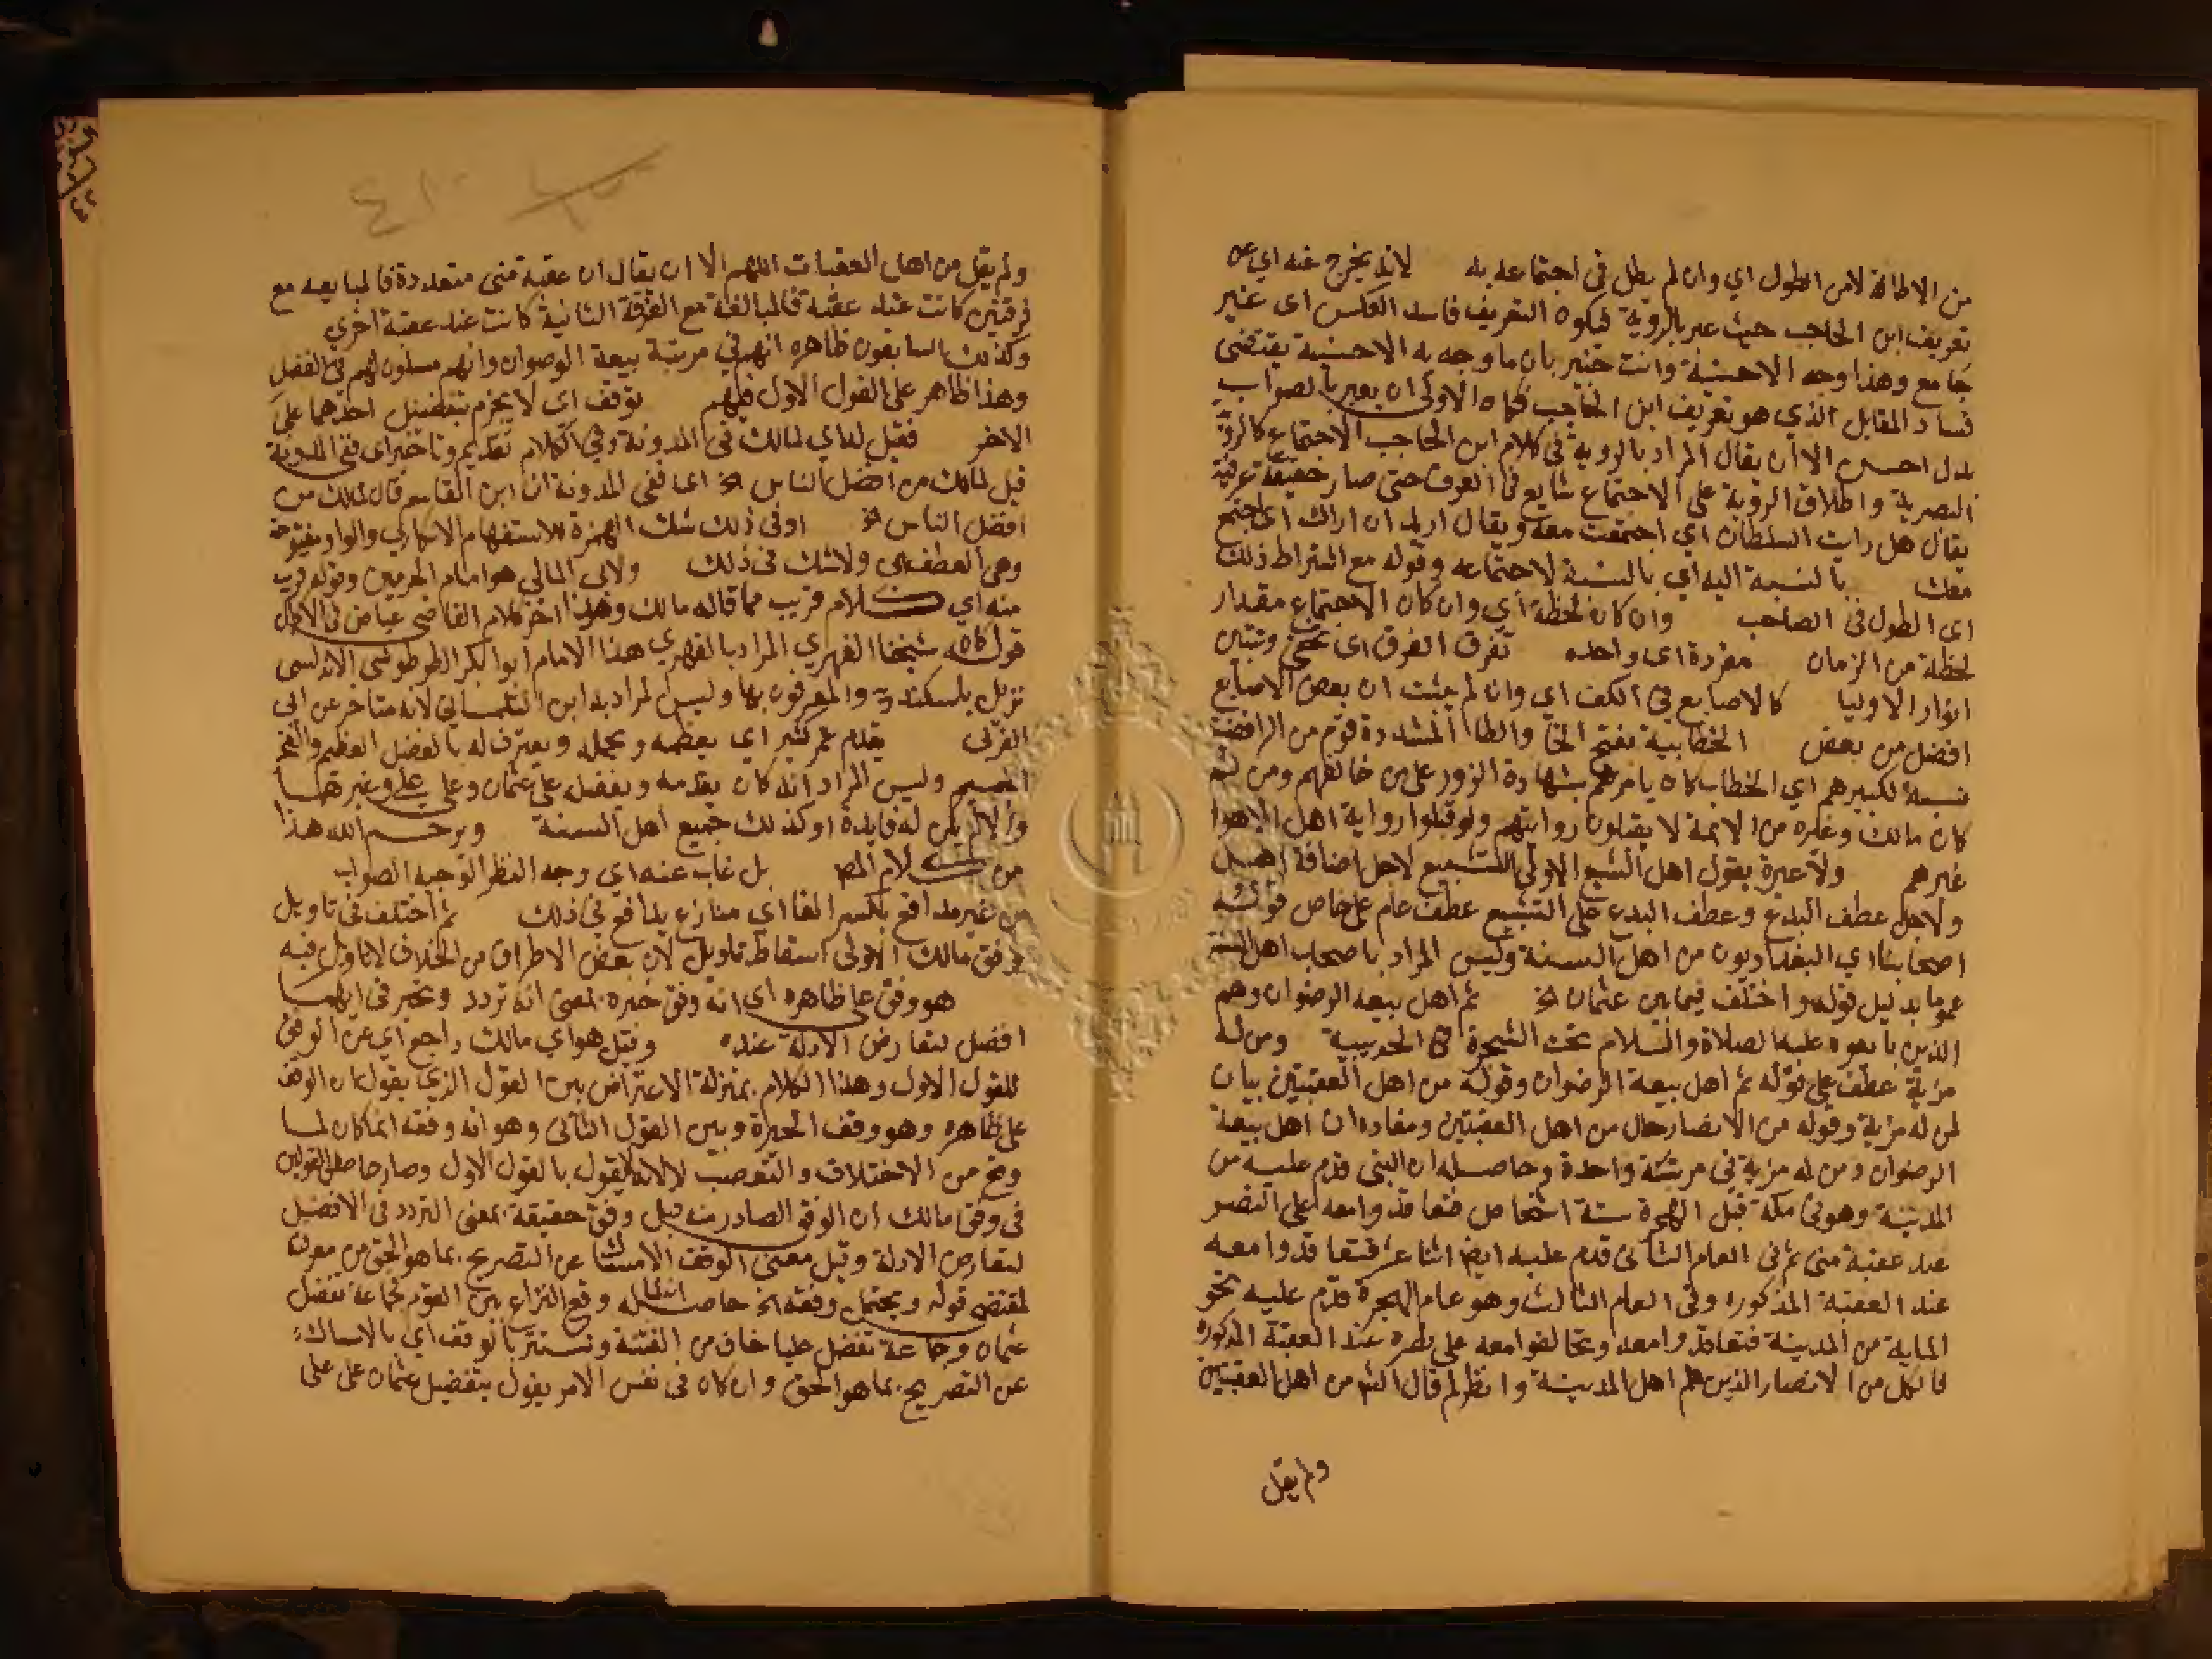 من الاطالة لا من الطول اي وان لم يطل في اجتماعه به لانه يخرج عنه اي عن
تعريف ابن الحاجب حيث عبر بالروية فيكون التعريف فاسد العكس اى غير
جامع وهذا وجه الاحسنية وانت خبير بان ما وجه به الاحسنية يقتضى
فساد المقابل الذي هو تعريف ابن الحاجب فكان الاولى ان يعبر بالصواب
بدل احسن الا ان يقال المراد بالروية في كلام ابن الحاجب الاجتماع
البصرية واطلاق الروية على الاجتماع شايع في العرف حتى صار حقيقة عرفية
يقال هل رايت السلطان اي اجتمعت معه ويقال اريد ان اراك اى اجتمع
معك بالنسبة اليه اي بالنسبة لاجتماعه وقوله مع اشتراط ذلك
اى الطول في الصاحب وان كان لحظة أي وان كان الاجتماع مقدار
لحظة من الزمان مفردة اى واحده تفرق الفرق اى وتبين
انوار الاوليا كالاصابع في الكف اي وان لم يثبت ان بعض الاصابع
افضل من بعض الخطابية بفتح الخا والطا المشددة قوم من الرافضة
نسبة لكبيرهم اي الخطاب كان يامرهم بشهادة الزور على من خالفهم ومن ثم
كان مالك وغيره من الايمة لا يقبلون روايتهم ولو قبلوا رواية اهل الاهوا
غيرهم ولا عبرة بقول اهل التشيع الاولى التشيع لاجل اضافة اهل
ولاجل عطف البدع وعطف البدع على التشيع عطف عام على خاص قوله
اصحابنا اي البغداديون من اهل السنة وليس المراد باصحاب اهل السنة
عموما بدليل قوله واختلف فيما بين عثمان الخ ثم اهل بيعة الرضوان وهم
الذين بايعوه عليه الصلاة والسلام تحت الشجرة في الحديبية ومن له
مزية عطف على قوله ثم اهل بيعة الرضوان وقوله من اهل العقبتين بيان
لمن له مزية وقوله من الانصار حال من اهل العقبتين ومفاده ان اهل بيعة
الرضوان ومن له مزية في مرتبة واحدة وحاصله ان النبى قدم عليه من
المدينة وهو في مكة قبل الهجرة ستة اشخاص فتعاقدوا معه على النصر
عند عقبة منى ثم في العام الثاني قدم عليه ايضا اثنا عشر فتعاقدوا معه
عند العقبة المذكورة وفي العام الثالث وهو عام الهجرة قدم عليه نحو
الماية من المدينة فتعاقدوا معه وتحالفوا معه على نصره عند العقبة المذكورة
فالكل من الانصار الذين هم اهل المدينة وانظر لم قال الشم من اهل العقبتين
ولم يقل
ولم يقل من اهل العقبات اللهم الا ان يقال ان عقبة منى متعددة فالمبايعه مع
فرقتين كانت عند عقبة فالمبالغة مع الفرقة الثانية كانت عند عقبة اخرى
وكذلك السابقون ظاهره انهم في مرتبة بيعة الرضوان وانهم مساوون لهم في الفضل
وهذا ظاهر على القول الاول فيهم توقف اى لا يجزم بتفضيل احدهما على
الاخر فقيل له اي لمالك في المدونة وفي الكلام تقديم وتاخير اى ففي المدونة
قيل لمالك من افضل الناس الخ اى ففى المدونة ان ابن القاسم قال لمالك من
افضل الناس الخ اوفى ذلك شك الهمزة للاستفهام الانكاري والواو مفتوحة
وهى العطف اى ولا شك في ذلك ولابى المالى هو امام الحرمين وقوله قريب
منه اي كلام قريب مما قاله مالك وهذا اخر كلام القاضى عياض في الاكمال
قوله شيخنا الفهري المراد بالفهري هذا الامام ابو ابكر الطرطوشى الاندلسى
نزيل باسكندرية والمعرفون بها وليس المراد به ابن التلمسانى لانه متاخر عن
الغزلى يقدم عمر كثير اي يعظمه ويجمله ويعترف له بالفضل العظيم
وليس المراد انه كان يقدمه ويفضله على عثمان وعلى وغيرهما
والا لم يكن له فايدة اوكذلك جميع اهل السنة ويرحم الله هذا
من كلام المص بل غاب عنه اي وجه النظر الوجيه الصواب
من غير مدافع بكسر الفا اي منازع يدافع في ذلك ثم اختلف في تاويل
وقف مالك الاولى اسقاط تاويل لان بعض الاطراف من الخلاف لا تاويل فيه
هو وقف على ظاهره اى انه وقف خبره بمعنى انه تردد وتحير في ايهما
افضل لتعارض الادلة عنده وقيل هو اي مالك راجع اي عن الوقف
للقول الاول وهذا الكلام بمنزلة الاعتراض بين القول الذي يقول ان الوقف
على ظاهره وهو وقف الحيرة وبين القول الثانى وهو انه وقفه انما كان لما
وقع من الاختلاف والتعصب لا لانه لا يقول بالقول الاول وصار حاصل القولين
في وقف مالك ان الوقف الصادر منه قيل وقف حقيقة بمعنى التردد في الافضل
لتعارض الادلة وقيل معنى الوقف الامساك عن التصريح بما هو الحق
لمقتضى قوله ويحتمل وقفه الخ حاصله انه لما وقع النزاع بين القوم فجماعة تفضل
عثمان وجماعة تفضل عليا خاف من الفتنة وتستتر بالوقف اي بالامساك
عن التصريح بما هو الحق وان كان فى نفس الامر يقول بتفضيل عثمان على على